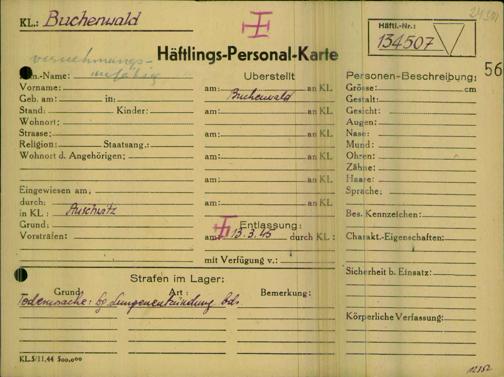 KL.: Buchenwald
Häftl.-Nr.:
134507
Häftlings-Personal-Karte
56
vernehmungs-
unfähig
Fam.-Name:
Überstellt
Personen-Beschreibung:
Vorname:
am: Buchenwald an KL
Grösse: cm
Geb. am: in:
Gestalt:
Stand: Kinder:
am: an KL
Gesicht:
Wohnort:
Augen:
Strasse:
am: an KL
Nase:
Religion: Staatsang.:
Mund:
Wohnort d. Angehörigen:
am: an KL
Ohren:
Zähne:
am: an KL
Haare:
Eingewiesen am:
Sprache:
durch:
am: an KL
in KL: Auschwitz
Bes. Kennzeichen:
Grund:
Entlassung:
Vorstrafen:
am 13.3.45 durch KL:
Charakt.-Eigenschaften:
mit Verfügung v.:
Strafen im Lager:
Sicherheit b. Einsatz:
Grund: Art: Bemerkung:
Todesursache: Lungenentzündung bds
Körperliche Verfassung:
KL.5/11.44 500.000
12352